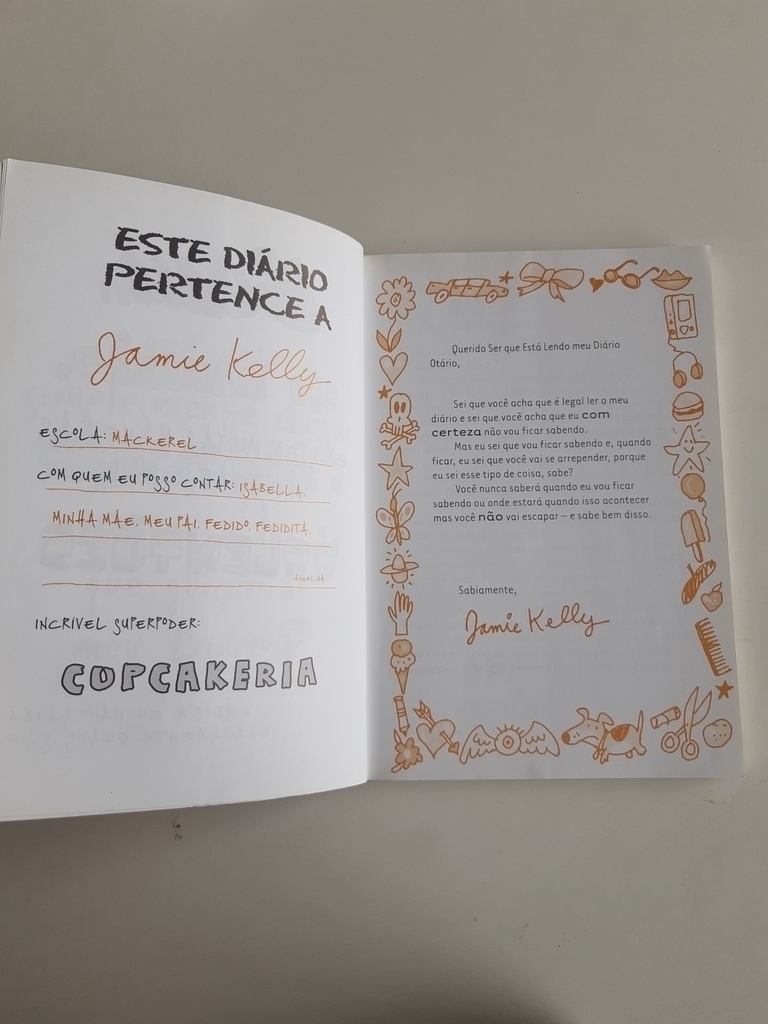 ESTE DIÁRIO
PERTENCE A
Jamie Kelly
ESCOLA: MACKEREL
COM QUEM EU POSSO CONTAR: ISABELLA,
MINHA MÃE, MEU PAI, FEDIDO, FEDIDITA.
ANGELINA
INCRÍVEL SUPERPODER:
CUPCAKERIA
Querido Ser que Está Lendo meu Diário
Otário,
Sei que você acha que é legal ler o meu
diário e sei que você acha que eu com
certeza não vou ficar sabendo.
Mas eu sei que vou ficar sabendo e, quando
ficar, eu sei que você vai se arrepender, porque
eu sei esse tipo de coisa, sabe?
Você nunca saberá quando eu vou ficar
sabendo ou onde estará quando isso acontecer
mas você não vai escapar – e sabe bem disso.
Sabiamente,
Jamie Kelly